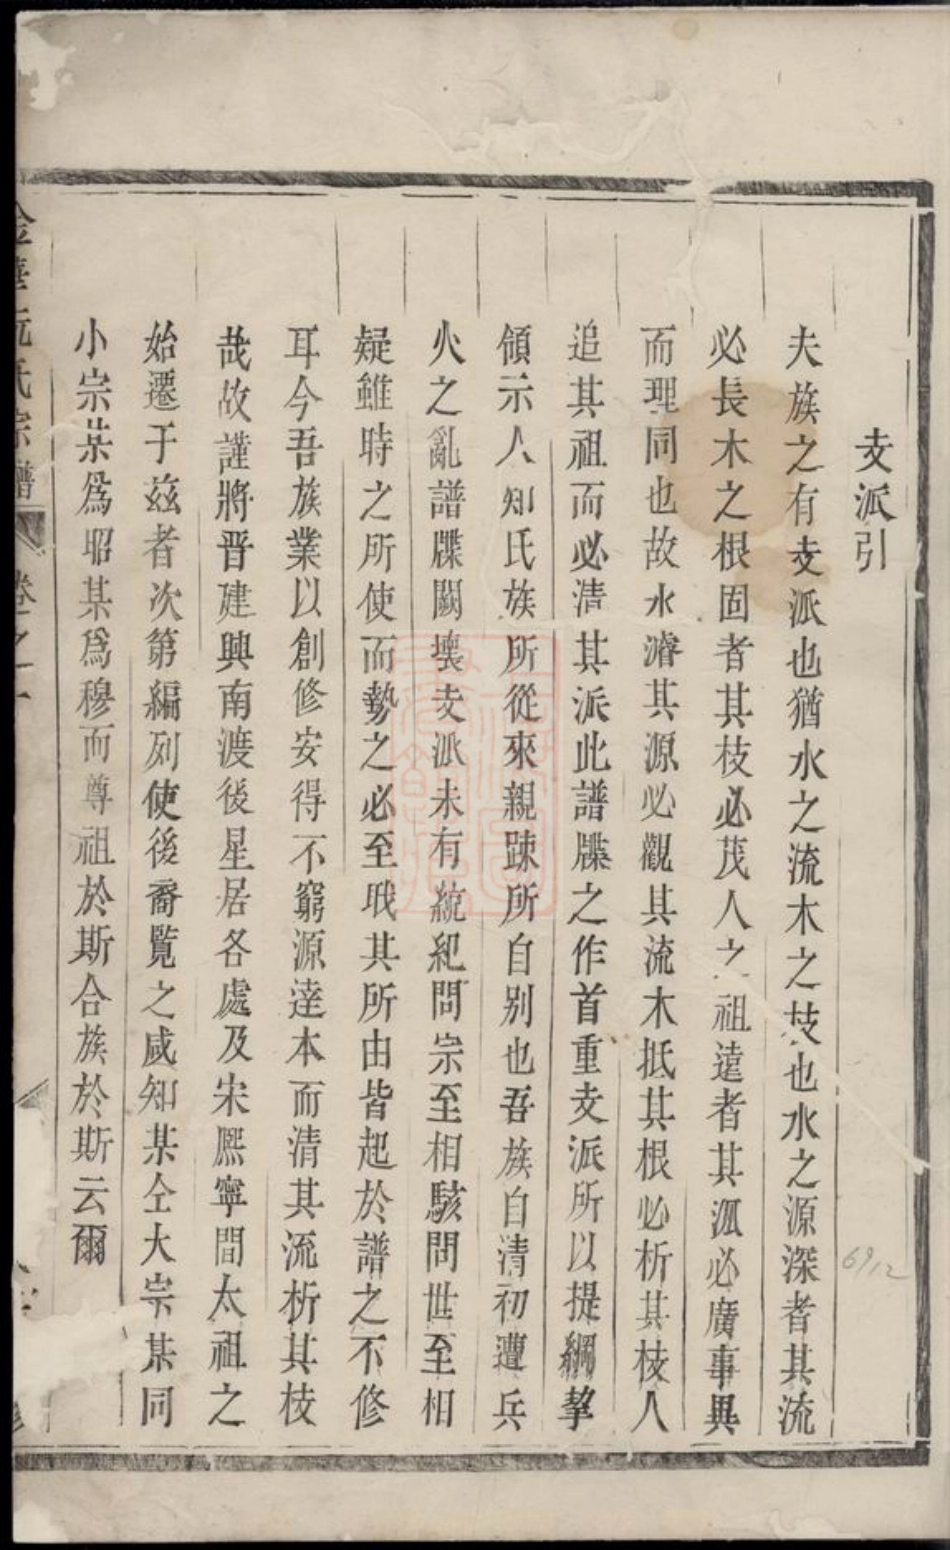 支派引
夫族之有支派也猶水之流木之枝也水之源深者其流
必長木之根固者其枝必茂人之祖遠者其派必廣事異
而理同也故水濬其源必觀其流木抵其根必析其枝人
追其祖而必清其派此譜牒之作首重支派所以提綱挈
領示人知氏族所從來親踈所自别也吾族自清初遭兵
火之亂譜牒闕壞支派未有統紀問宗至相駭問世至相
疑雖時之所使而勢之必至哉其所由皆起於譜之不修
耳今吾族業以創修安得不窮源達本而清其流析其枝
哉故謹將晋建興南渡後星居各處及宋熈寧間太祖之
始遷于兹者次第編列使後裔覧之咸知某仝大宗某同
小宗某爲昭某爲穆而尊祖於斯合族於斯云爾
金華阮氏宗譜 卷之一
6912